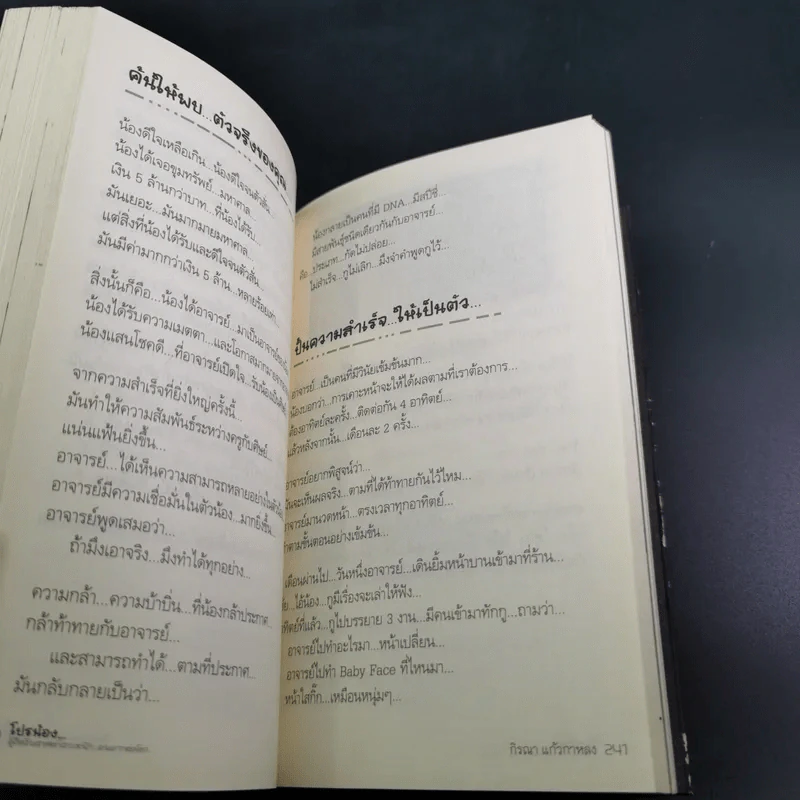 ค้นให้พบ...ตัวจริงของคุณ
น้องดีใจเหลือเกิน...น้องดีใจจนตัวสั่น...
น้องได้เจอขุมทรัพย์...มหาศาล...
เงิน 5 ล้านกว่าบาท...ที่น้องได้รับ...
มันเยอะ...มันมากมายมหาศาล...
แต่สิ่งที่น้องได้รับและดีใจจนตัวสั่น...
มันมีค่ามากกว่าเงิน 5 ล้าน...หลายร้อยเท่า...
สิ่งนั้นก็คือ...น้องได้อาจารย์...มาเป็นอาจารย์
น้องได้รับความเมตตา...และโอกาสมากมาย
น้องแสนโชคดี...ที่อาจารย์เปิดใจ...รับน้องเป็นศิษย์
จากความสำเร็จที่ยิ่งใหญ่ครั้งนี้...
มันทำให้ความสัมพันธ์ระหว่างครูกับศิษย์...
แน่นแฟ้นยิ่งขึ้น...
อาจารย์...ได้เห็นความสามารถหลายอย่างในตัวน้อง
อาจารย์มีความเชื่อมั่นในตัวน้อง...มากยิ่งขึ้น...
อาจารย์พูดเสมอว่า...
ถ้ามึงเอาจริง...มึงทำได้ทุกอย่าง...
ความกล้า...ความบ้าบิ่น...ที่น้องกล้าประกาศ...
กล้าท้าทายกับอาจารย์...
และสามารถทำได้...ตามที่ประกาศ...
มันกลับกลายเป็นว่า...
โปรน้อง...
น้องกลายเป็นคนที่มี DNA...มีสปีชี่...
มีสายพันธุ์ชนิดเดียวกันกับอาจารย์...
คือ...ประเภท...กัดไม่ปล่อย...
ไม่สำเร็จ...กูไม่เลิก...มึงจำคำพูดกูไว้...
ปั้นความสำเร็จ...ให้เป็นตัว...
อาจารย์...เป็นคนที่มีวินัยเข้มข้นมาก...
น้องบอกว่า...การเคาะหน้าจะให้ได้ผลตามที่เราต้องการ...
ต้องอาทิตย์ละครั้ง...ติดต่อกัน 4 อาทิตย์...
แล้วหลังจากนั้น...เดือนละ 2 ครั้ง...
อาจารย์อยากพิสูจน์ว่า...
มันจะเห็นผลจริง...ตามที่ได้ท้าทายกันไว้ไหม...
อาจารย์มานวดหน้า...ตรงเวลาทุกอาทิตย์...
ทำตามขั้นตอนอย่างเข้มข้น...
เดือนผ่านไป...วันหนึ่งอาจารย์...เดินยิ้มหน้าบานเข้ามาที่ร้าน...
ไอ้น้อง...กูมีเรื่องจะเล่าให้ฟัง...
อาทิตย์ที่แล้ว...กูไปบรรยาย 3 งาน...มีคนเข้ามาทักกู...ถามว่า...
อาจารย์ไปทำอะไรมา...หน้าเปลี่ยน...
อาจารย์ไปทำ Baby Face ที่ไหนมา...
หน้าใสกิ๊ก...เหมือนหนุ่มๆ...
กิรณา แก้วกาหลง 241